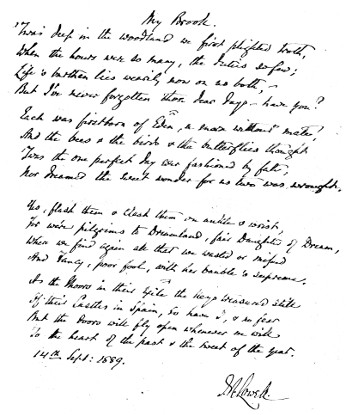 My Brook.
'Twas deep in the woodland we first plighted troth,
When the hours were so many, the duties so few;
Life's burthen lies wearily now on us both,—
But I've never forgotten those dear days—have you?
Each was firstborn of Eden, a morn without mate,
And the bees & the birds & the butterflies thought
'Twas the one perfect day ever fashioned by fate,
Nor dreamed the sweet wonder for us two was wrought.
flash them & clash them on ankle & wrist,
For we're pilgrims to Dreamland, fair Daughter of Dream,
Where we find again all that we wasted or missed
And Fancy, poor fool, with her bauble's supreme.
As the Moors in their exile the keys treasured still
Of their Castles in Spain, so have I; & no fear
But the doors will fly open whenever we will
To the heart of the past & the sweet of the year.
14th Sept: 1889.
J. R. Lowell.